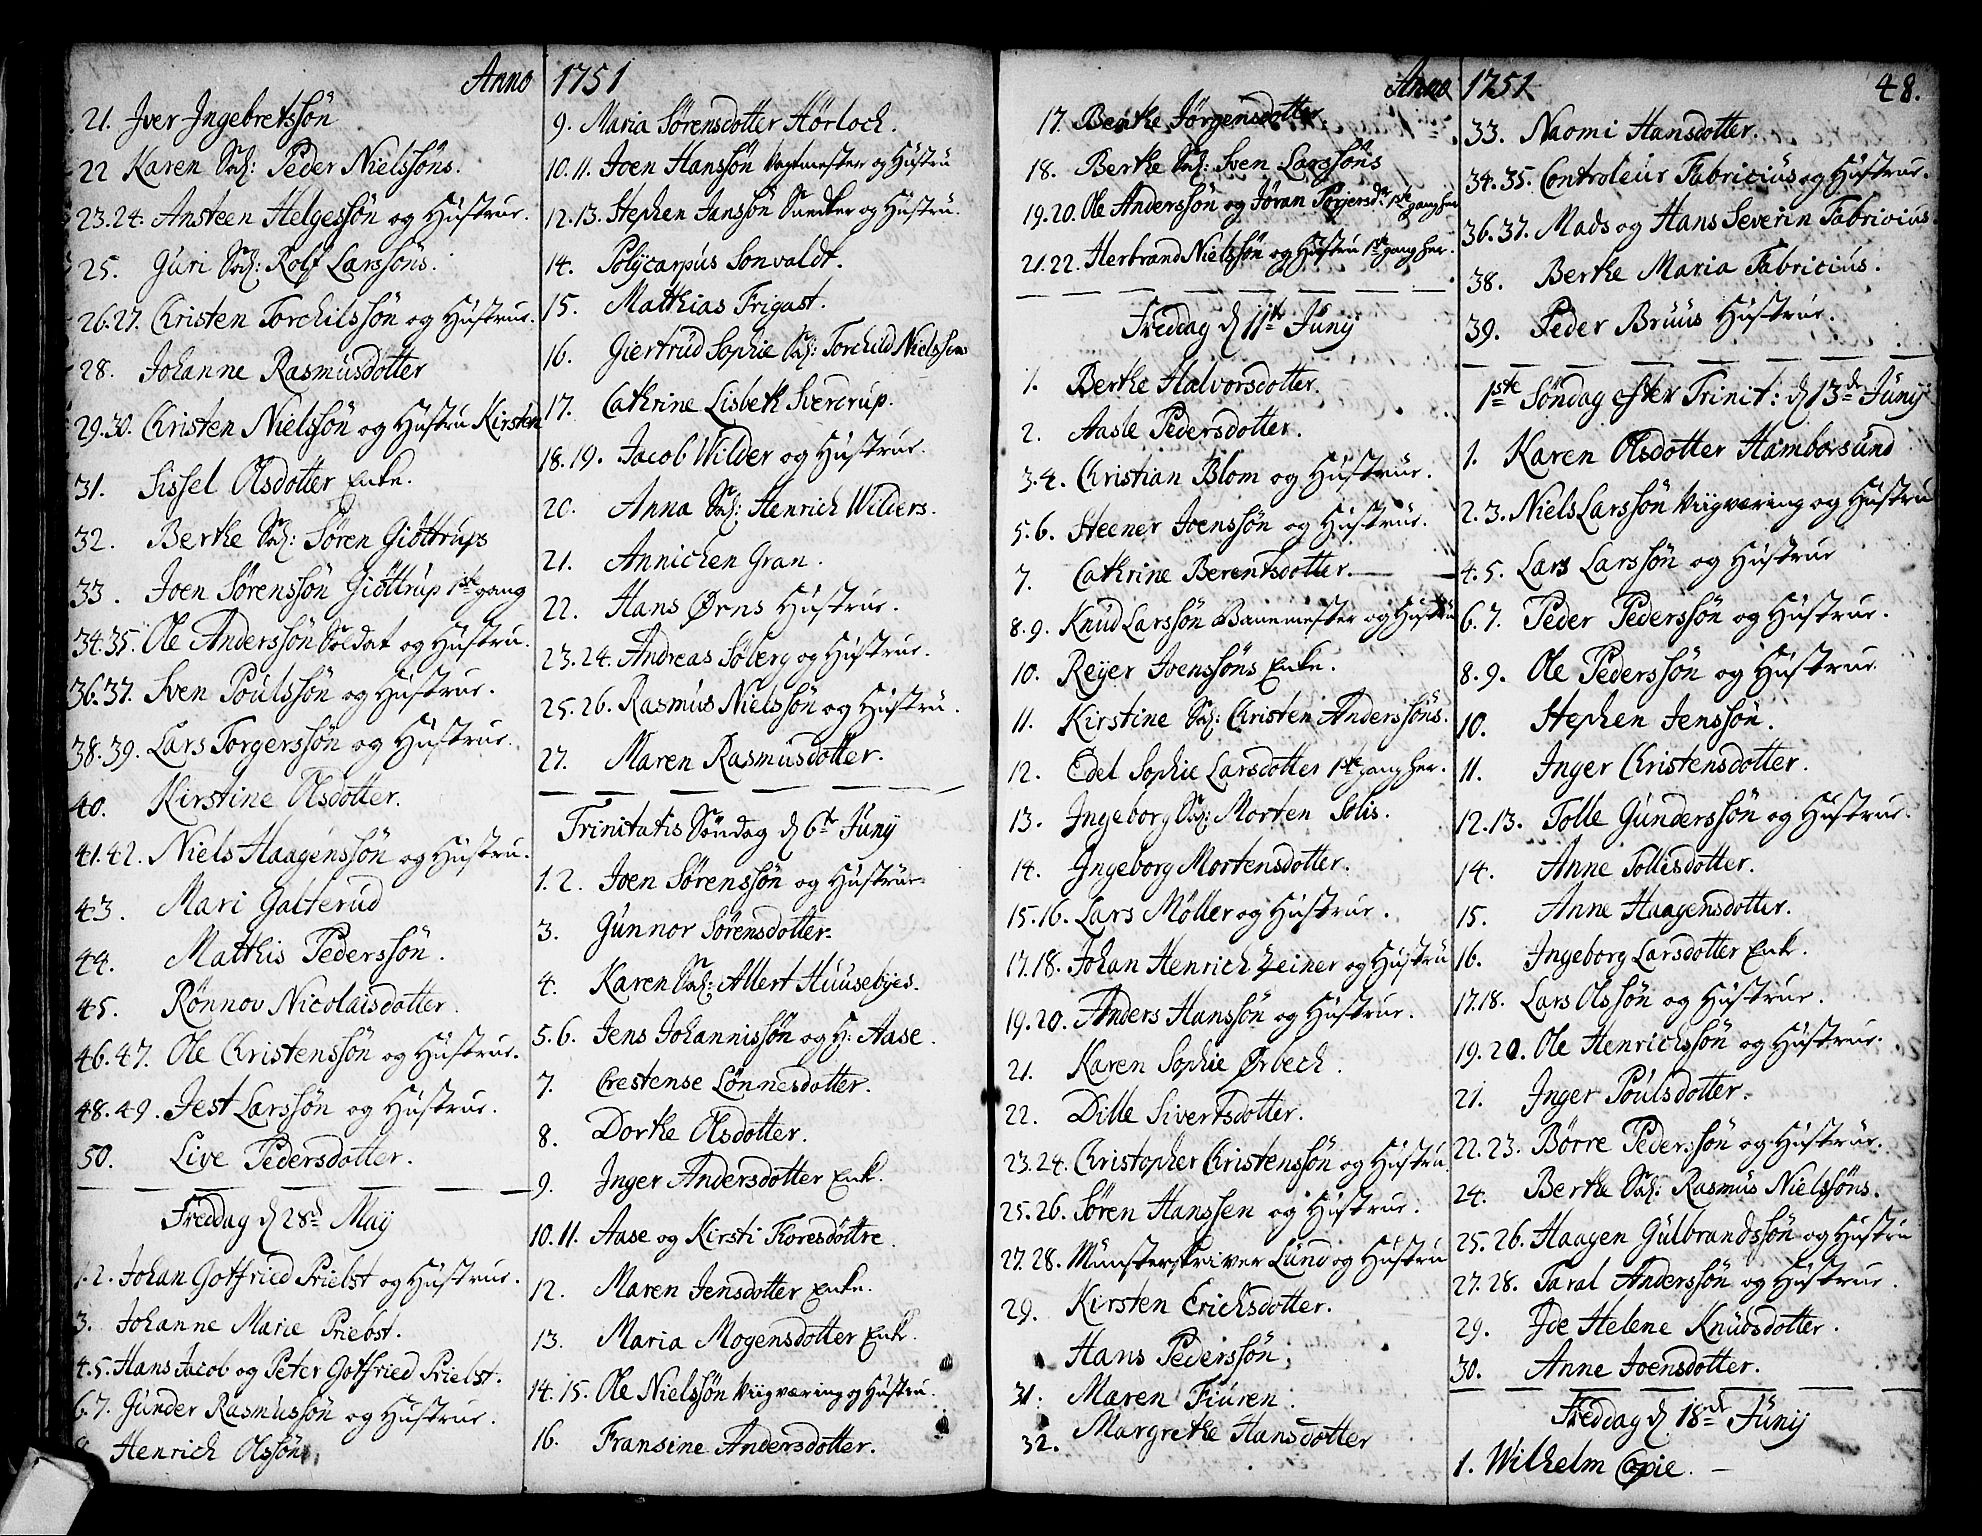 Anno 1751
21. Iver Ingebretssön
22 Karen Sal: Peder Nielssöns.
23.24. Ansteen Helgessön og Hustrue.
25. Guri Sal: Rolf Larssöns.
26.27. Christen Torchilssön og Hustrue.
28. Johanne Rasmusdotter
29.30. Christen Nielssön og Hustru Kirsten
31. Sissel Olsdotter Enke.
32. Berthe Sal: Sören Giöttrups
33. Joen Sörenssön Giöttrup 1ste gang
34.35. Ole Anderssön Soldat og Hustru.
36.37. Sven Poulssön og Hustrue.
38.39. Lars Torgerssön og Hustrue.
40. Kirstine Olsdotter.
41.42. Niels Haagenssön og Hustru.
43. Mari Galterud
44. Matthis Pederssön.
45. Rønnov Nicolaisdatter.
46.47. Ole Christenssön og Hustrue.
48.49. Jest Larssön og Hustrue.
50. Live Pedersdotter.
Freddag d 28de Maij
1.2. Johan Gotfried Priebst og Hustrue.
3. Johanne Marie Priebst.
4.5. Hans Jacob og Peter Gotfried Priebst.
6.7. Gunder Rasmussön og Hustrue.
8. Henrich Olssön.
9. Maria Sørensdotter Hörloch.
10.11. Joen Hanssön Vagtmester og Hustru
12.13. Stephen Janssön Snedker og Hustru.
14. Polycarpus Sonvaldt.
15. Matthias Frigast.
16. Giertrud Sophie Sal: Torchild Nielssens
17. Cathrine Lisbeth Sverdrup.
18.19. Jacob Wilder og Hustrue.
20. Anna Sal: Henrich Wilders.
21. Annichen Gran.
22. Hans Ørns Hustrue.
23.24. Andreas Söberg og Hustrue.
25.26. Rasmus Nielssön og Hustru.
27. Maren Rasmusdotter.
Trinitatis Söndag d 6te Junij
1.2. Joen Sörenssön og Hustrue
3. Gunnor Sörensdotter
4. Karen Sal: Allert Huusebyes.
5.6. Jens Johannissön og H: Aase.
7. Crestense Lönnesdotter.
8. Dorthe Olsdotter.
9. Inger Andersdotter Enk.
10.11. Aase og Kirsti Toresdöttre.
12. Maren Jensdotter Enke.
13. Maria Mogensdotter Enk.
14.15. Ole Nielssön Viigværing og Hustru.
16. Fransine Andersdotter.
Anno 1751 48.
17. Berthe Jörgensdotter
18. Berthe Sal: Sven Larssöns
19.20. Ole Anderssön og Jöran Torjersdr 1ste gang her
21.22. Herbrand Nielssön og Hustru 1ste gang her.
Freddag d 11te Junij
1. Berthe Halvorsdotter.
2. Aasle Pedersdotter.
3.4. Christian Blom og Hustrue.
5.6. Steener Joenssön og Hustrue.
7. Cathrine Berentsdotter.
8.9. Knud Larssön Banemester og Hustru
10. Reyer Joenssöns Enke.
11. Kirstine Sal: Christen Anderssöns.
12. Edel Sophie Larsdotter 1ste gang her.
13. Ingeborg Sal: Morten Solis.
14. Ingeborg Mortensdotter.
15.16. Lars Møller og Hustrue.
17.18. Johan Henrich Zeiner og Hustru
19.20. Anders Hanssön og Hustrue.
21. Karen Sophie Ørbech.
22. Dille Sivertsdotter.
23.24. Christopher Christenssön og Hustru.
25.26. Sören Hanssen og Hustrue.
27.28. Münsterskriver Lund og Hustru
29. Kirsten Erichsdotter.
Hans Pederssön.
31. Maren Fiuren.
32. Margrethe Hansdotter
33. Naomi Hansdotter.
34.35. Controleur Fabricius og Hustrue.
36.37. Mads og Hans Severin Fabricius.
38. Berthe Maria Fabricius.
39. Peder Bruus Hustrue.
1ste Söndag efter Trinit: d 13de Junij
1. Karen Olsdotter Hamborsund
2.3. Niels Larssön Viigværing og Hustru
4.5. Lars Larssön og Hustrue
6.7. Peder Pederssön og Hustrue.
8.9. Ole Pederssön og Hustrue
10. Stephen Jenssön.
11. Inger Christensdotter.
12.13. Tolle Gunderssön og Hustrue.
14. Anne Tollisdotter.
15. Anne Haagensdotter.
16. Ingeborg Larsdotter Enk.
17.18. Lars Olssön og Hustrue.
19.20. Ole Henrichssön og Hustrue.
21. Inger Poulsdotter.
22.23. Börre Pederssön og Hustrue.
24. Berthe Sal: Rasmus Nielssöns.
25.26. Haagen Gulbrandssön og Hustru
27.28. Taral Anderssön og Hustrue.
29. Ide Helene Knudsdotter.
30. Anne Joensdotter.
Freddag d. 18de Junij
1. Wilhelm Copie.